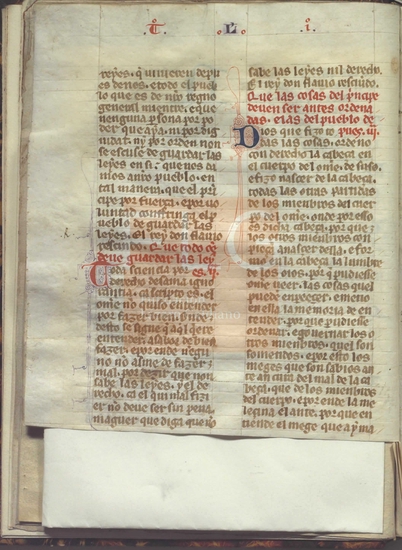 T L i
reyes. q̃ uinieren depu
es denos. e todo el pueb
lo que es de nr̃o regno
general mientre. e que
nenguna ꝑsona por po
der que aya. nĩ por dig
nidat. nĩ por orden non
se escuse de guardar las
leyes en si. que nos da
mos anr̃o pueblo. en
tal manera. que el prĩ
cipe por fuerça. e por uo
luntad constringa el pu
eblo de guardar las
leyes. El rey don flauio
rescindo. Que todo oẽ
deue guardar las ley
es. ij.
Toda sciencia por
derecho desama igno
rancia. ca scripto es. el
om̃e no quiso entender
por fazer bien.
derecho se sigue q̃ aq̃l quiere
entender asabor de bien
fazer. e por ende negũ
no no asme de fazer
mal. por dezir que non
sabe las leyes. y el de
recho. ca el qui mal fizi
er nõ deue ser sin pena.
maguer que diga que nõ
sabe las leyes nil derecho.
El rey don flauio rescindo.
Que las cosas del prĩcipe
deuen ser antes ordena
das. e las del pueblo de
pues. iij.
Dios que fizo to
das las cosas. ordeno
con derecho la cabeça en
el cuerpo del om̃e. de suso.
e fizo nascer de la cabeça.
todas las otras partidas
de los miembros del cuer
po del om̃e. onde por esso
es dicha cabeça. por que
los otros miembros con
liença anascer della. e for
mo en la cabeça la lumbre
de los oios. por q̃ pudiesse
om̃e ueer. las cosas quel
puede enpeecer. e meno
en ella la memoria de en
tender. por que pudiesse
ordenar. e gouernar los o
tros miembros. quel son
sometidos. e por esto los
meges que son sabios an
te an cura del mal de la ca
beça. que de los miembros
del cuerpo. e por ende la me
lezina el ante. por que en
tiende el mege que ayma